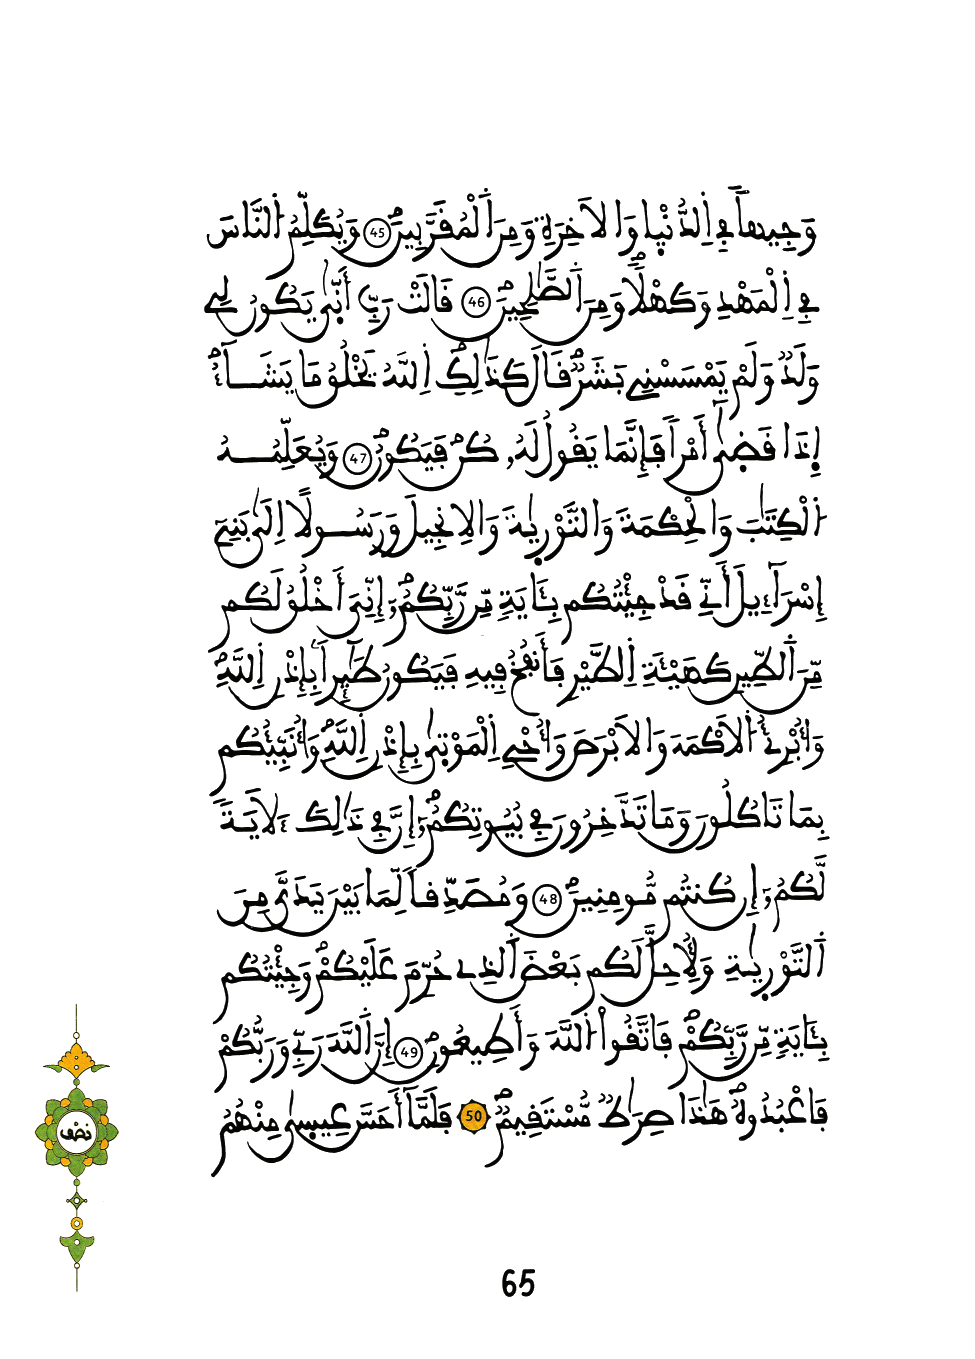 وَجِيهاً فِے اِ۬لدُّنْي۪ا وَالَاخِرَةِ وَمِنَ اَ۬لْمُقَرَّبِينَۖ 45 وَيُكَلِّمُ اُ۬لنَّاسَ
فِے اِ۬لْمَهْدِ وَكَهْلاٗ وَمِنَ اَ۬لصَّٰلِحِينَۖ 46 قَالَتْ رَبِّ أَنّ۪ىٰ يَكُونُ لِے
وَلَدٞ وَلَمْ يَمْسَسْنِے بَشَرٞۖ قَالَ كَذَٰلِكِ اِ۬للَّهُ يَخْلُقُ مَا يَشَآءُۖ
إِذَا قَض۪ىٰٓ أَمْراٗ فَإِنَّمَا يَقُولُ لَهُۥ كُن فَيَكُونُۖ 47 وَيُعَلِّمُهُ
اُ۬لْكِتَٰبَ وَالْحِكْمَةَ وَالتَّوْر۪يٰةَ وَالِانجِيلَ وَرَسُولاً اِلَىٰ بَنِےٓ
إِسْرَآءِيلَ أَنِّے قَدْ جِئْتُكُم بِـَٔايَةٖ مِّن رَّبِّكُمُۥٓ إِنِّيَ أَخْلُقُ لَكُم
مِّنَ اَ۬لطِّينِ كَهَيْـَٔةِ اِ۬لطَّيْرِ فَأَنفُخُ فِيهِ فَيَكُونُ طَٰٓئِراَۢ بِإِذْنِ اِ۬للَّهِۖ
وَأُبْرِئُ اُ۬لَاكْمَهَ وَالَابْرَصَ وَأُحْيِ اِ۬لْمَوْت۪ىٰ بِإِذْنِ اِ۬للَّهِۖ وَأُنَبِّئُكُم
بِمَا تَاكُلُونَ وَمَا تَدَّخِرُونَ فِے بُيُوتِكُمُۥٓۖ إِنَّ فِے ذَٰلِكَ ءَلَايَةٗ
لَّكُمُۥٓ إِن كُنتُم مُّومِنِينَۖ 48 وَمُصَدِّقاٗ لِّمَا بَيْنَ يَدَيَّ مِنَ
اَ۬لتَّوْر۪يٰةِ وَلِأُحِلَّ لَكُم بَعْضَ اَ۬لذِے حُرِّمَ عَلَيْكُمْۖ وَجِئْتُكُم
بِـَٔايَةٖ مِّن رَّبِّكُمْۖ فَاتَّقُواْ اُ۬للَّهَ وَأَطِيعُونِۖ 49 إِنَّ اَ۬للَّهَ رَبِّے وَرَبُّكُمْ
فَاعْبُدُوهُۖ هَٰذَا صِرَٰطٞ مُّسْتَقِيمٞۖ 50 فَلَمَّآ أَحَسَّ عِيس۪ىٰ مِنْهُمُ
نصف
65